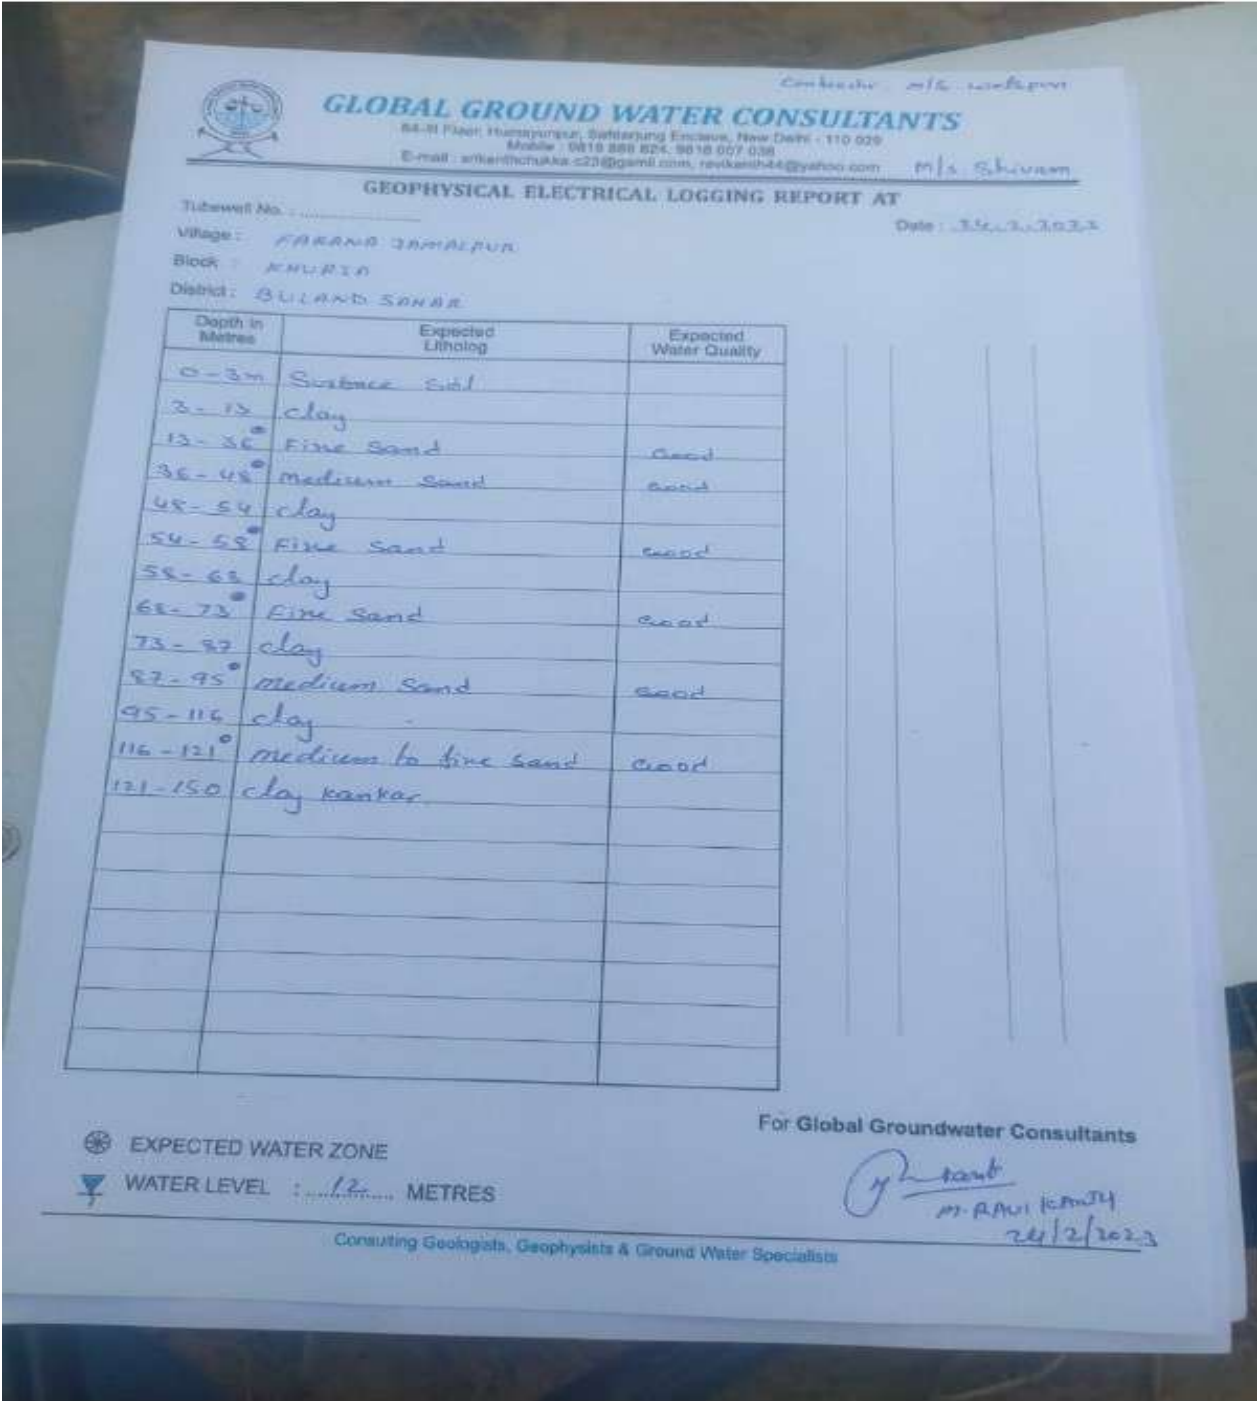 Contractor m/s
GLOBAL GROUND WATER CONSULTANTS
64-III Floor, Humayunpur, Safdarjung Enclave, New Delhi - 110 029
Mobile : 9818 888 824, 9818 007 038
E-mail : srikanthchukka.c23@gamil.com, ravikanth44@yahoo.com
M/s Shivam
GEOPHYSICAL ELECTRICAL LOGGING REPORT AT
Tubewell No. :
Date : 24.2.2023
Village : FARANA JAMALPUR
Block : KHURJA
District : BULAND SAHAR
Depth in Metres Expected Litholog Expected Water Quality
0-3m Surface Soil
3-13 clay
13-36 Fine Sand Good
36-48 medium Sand Good
48-54 clay
54-58 Fine Sand Good
58-68 clay
68-73 Fine Sand Good
73-87 clay
87-95 medium Sand Good
95-116 clay
116-121 medium to fine sand Good
121-150 clay kankar
For Global Groundwater Consultants
EXPECTED WATER ZONE
WATER LEVEL : 12 METRES
M. RAVI KANTH
24/2/2023
Consulting Geologists, Geophysists & Ground Water Specialists